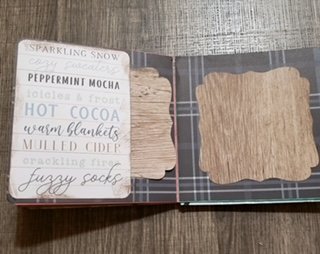 SPARKLING SNOW
cozy sweaters
PEPPERMINT MOCHA
icicles & frost
HOT COCOA
warm blankets
MULLED CIDER
crackling fire
fuzzy socks